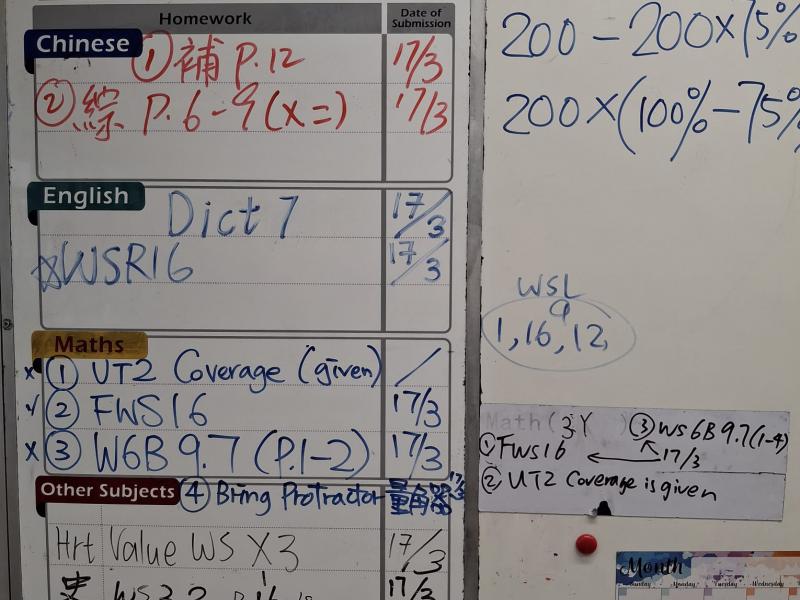 Homework
Date of Submission
Chinese
① 補 P.12 17/3
② 綜 P.6-9 (x=) 17/3
English
Dict 7 17/3
☆WSR16 17/3
Maths
x ① UT2 Coverage (given) /
✓ ② FWS16 17/3
x ③ W6B 9.7 (P.1-2) 17/3
Other Subjects ④ Bring Protractor 量角器 17/3
Value WS X3 17/3
史 17/3
200 - 200×75%
200×(100%-75%
WSL
9
1, 16, 12
Math (3Y )
③ WS 6B 9.7 (1-4)
① FWS16
17/3
② UT2 Coverage is given
Month
Sunday Monday Tuesday Wednesday